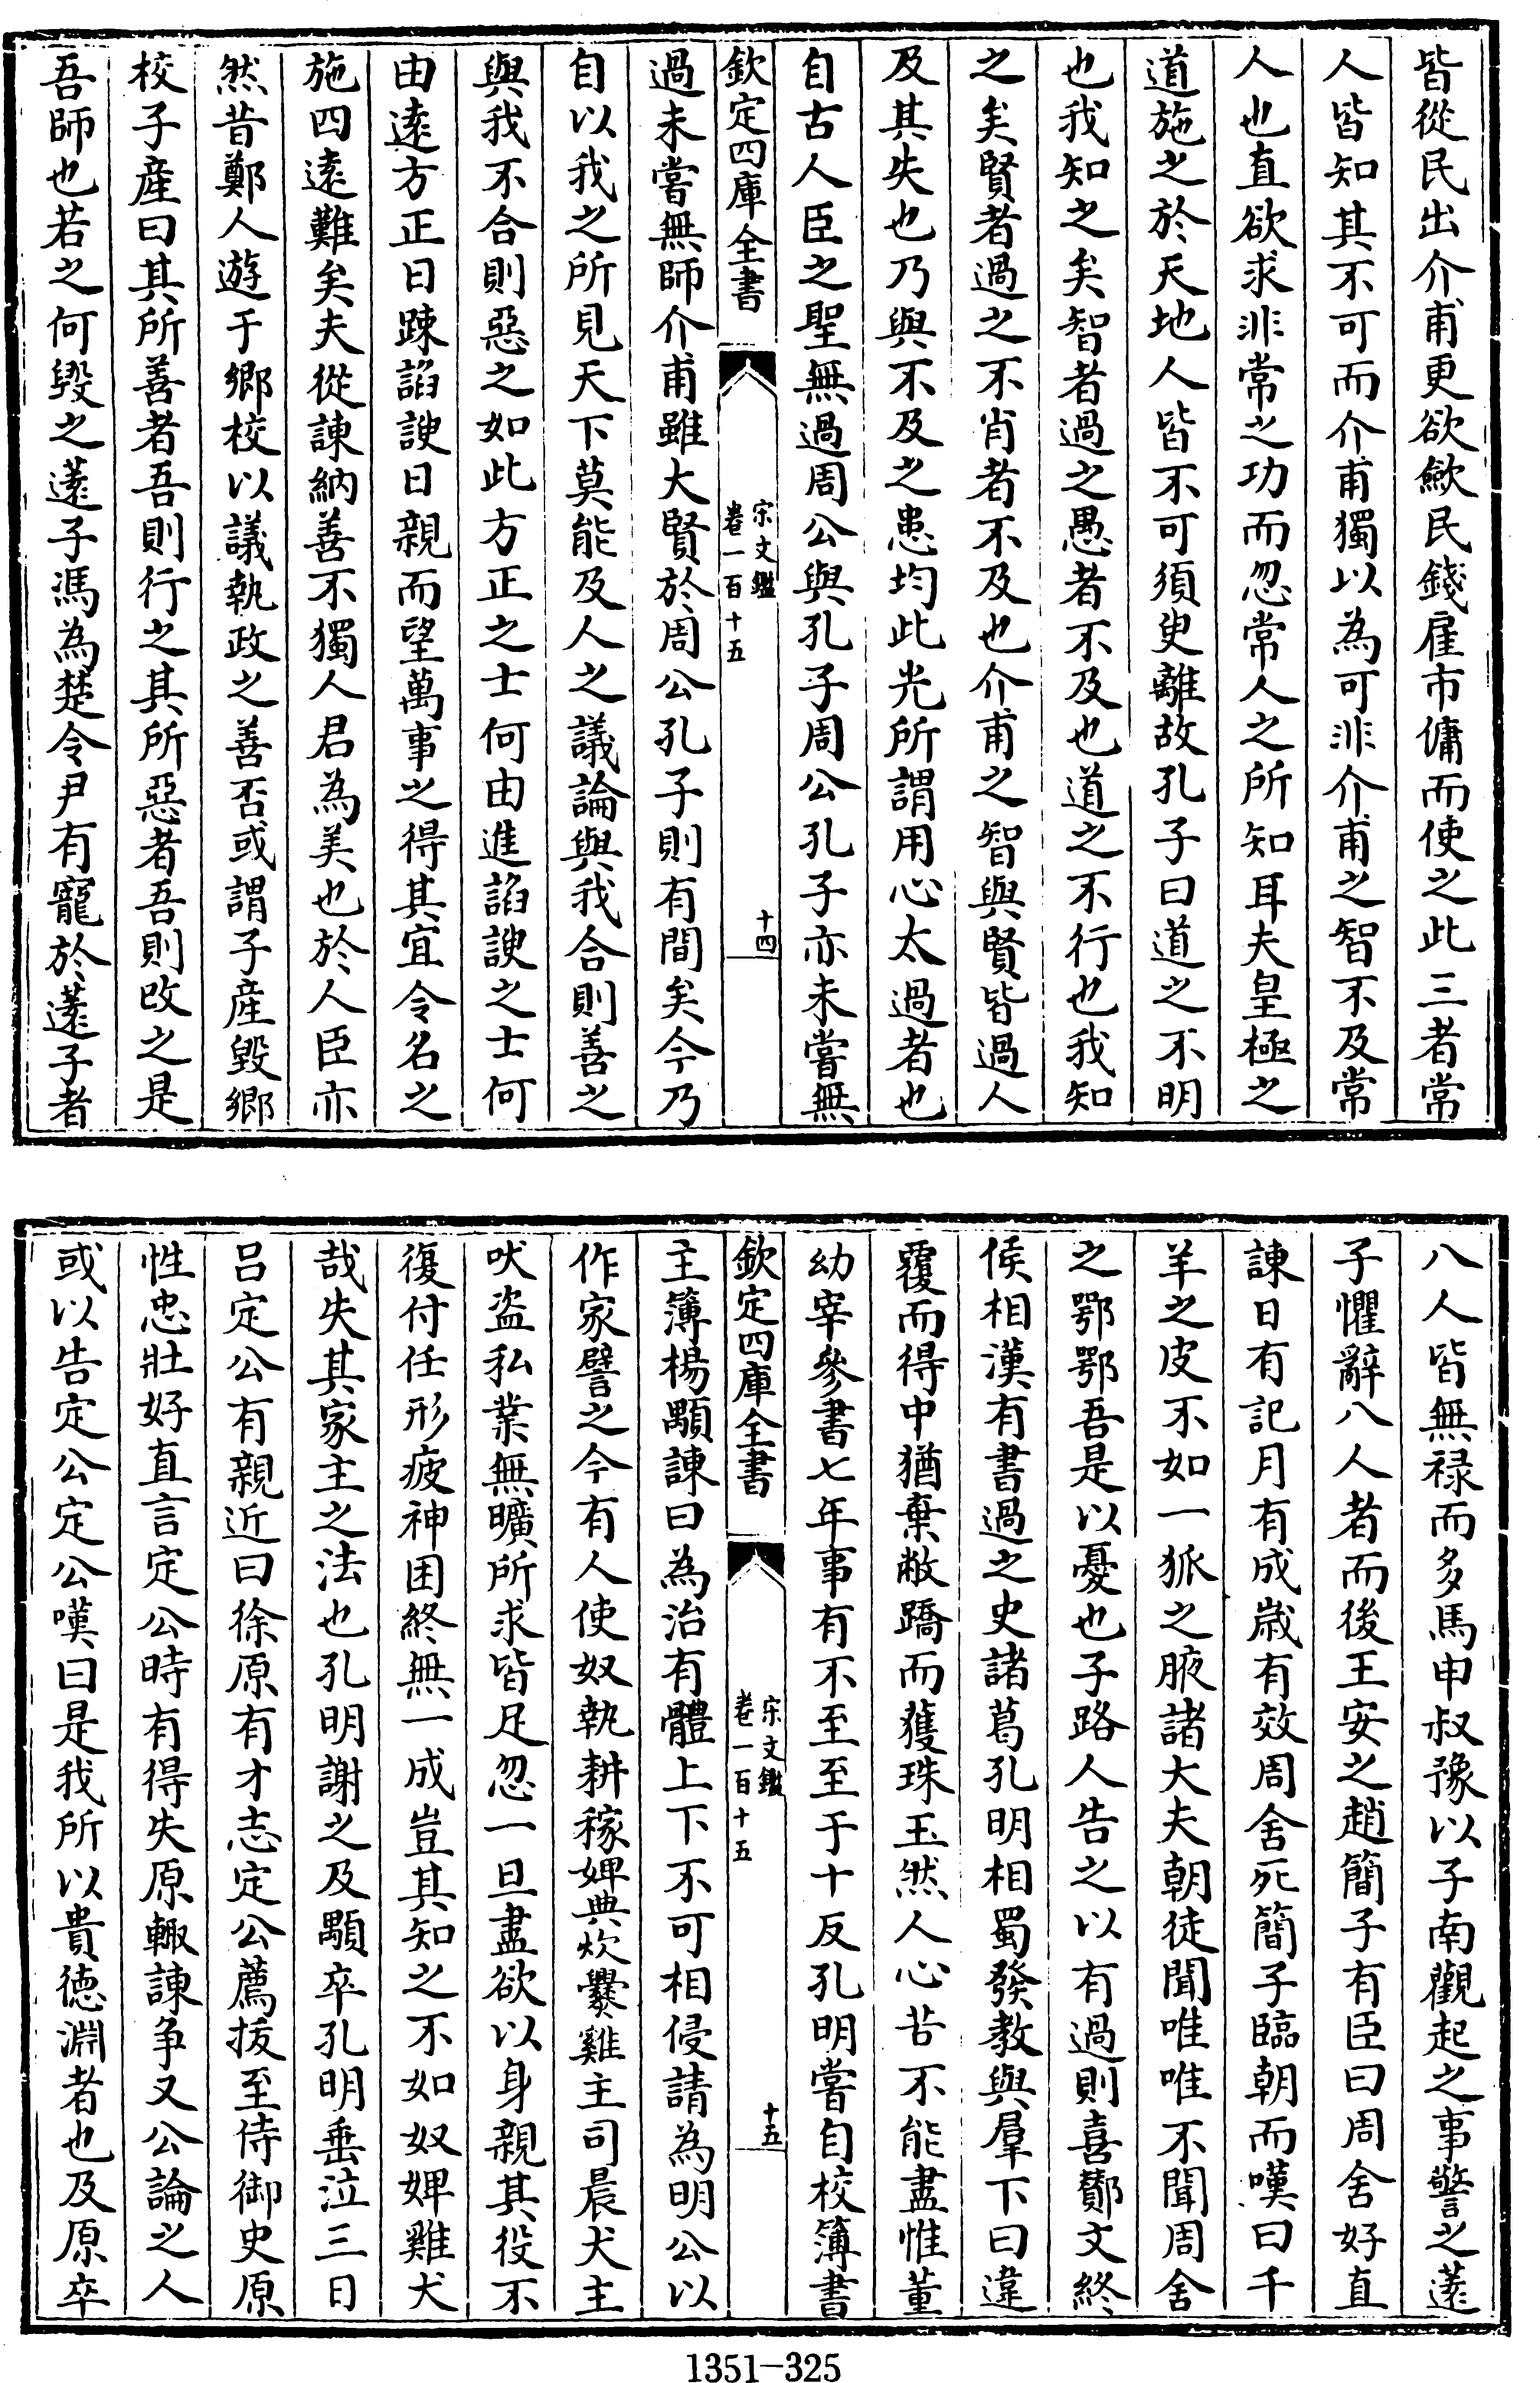 皆從民出介甫更欲斂民錢雇市傭而使之此三者常
人皆知其不可而介甫獨以為可非介甫之智不及常
人也直欲求非常之功而忽常人之所知耳夫皇極之
道施之於天地人皆不可須臾離故孔子曰道之不明
也我知之矣智者過之愚者不及也道之不行也我知
之矣賢者過之不肖者不及也介甫之智與賢皆過人
及其失也乃與不及之患均此光所謂用心太過者也
自古人臣之聖無過周公與孔子周公孔子亦未嘗無
欽定四庫全書
宋文鑑
卷一百十五
十四
過未嘗無師介甫雖大賢於周公孔子則有間矣今乃
自以我之所見天下莫能及人之議論與我合則善之
與我不合則惡之如此方正之士何由進諂諛之士何
由遠方正日踈諂諛日親而望萬事之得其宜令名之
施四遠難矣夫從諫納善不獨人君為美也於人臣亦
然昔鄭人遊于鄉校以議執政之善否或謂子產毀鄉
校子產曰其所善者吾則行之其所惡者吾則改之是
吾師也若之何毀之薳子馮為楚令尹有寵於薳子者
八人皆無禄而多馬申叔豫以子南觀起之事警之薳
子懼辭八人者而後王安之趙簡子有臣曰周舍好直
諫日有記月有成歲有效周舍死簡子臨朝而嘆曰千
羊之皮不如一狐之腋諸大夫朝徒聞唯唯不聞周舍
之鄂鄂吾是以憂也子路人告之以有過則喜酇文終
侯相漢有書過之史諸葛孔明相蜀發教與羣下曰違
覆而得中猶棄敝蹻而獲珠玉然人心苦不能盡惟董
幼宰參書七年事有不至至于十反孔明嘗自校簿書
欽定四庫全書
宋文鑑
卷一百十五
十五
主簿楊顒諫曰為治有體上下不可相侵請為明公以
作家譬之今有人使奴執耕稼婢典炊爨雞主司晨犬主
吠盜私業無曠所求皆足忽一旦盡欲以身親其役不
復付任形疲神困終無一成豈其知之不如奴婢雞犬
哉失其家主之法也孔明謝之及顒卒孔明垂泣三日
吕定公有親近曰徐原有才志定公薦拔至侍御史原
性忠壯好直言定公時有得失原輙諫争又公論之人
或以告定公定公嘆曰是我所以貴德淵者也及原卒
1351-325